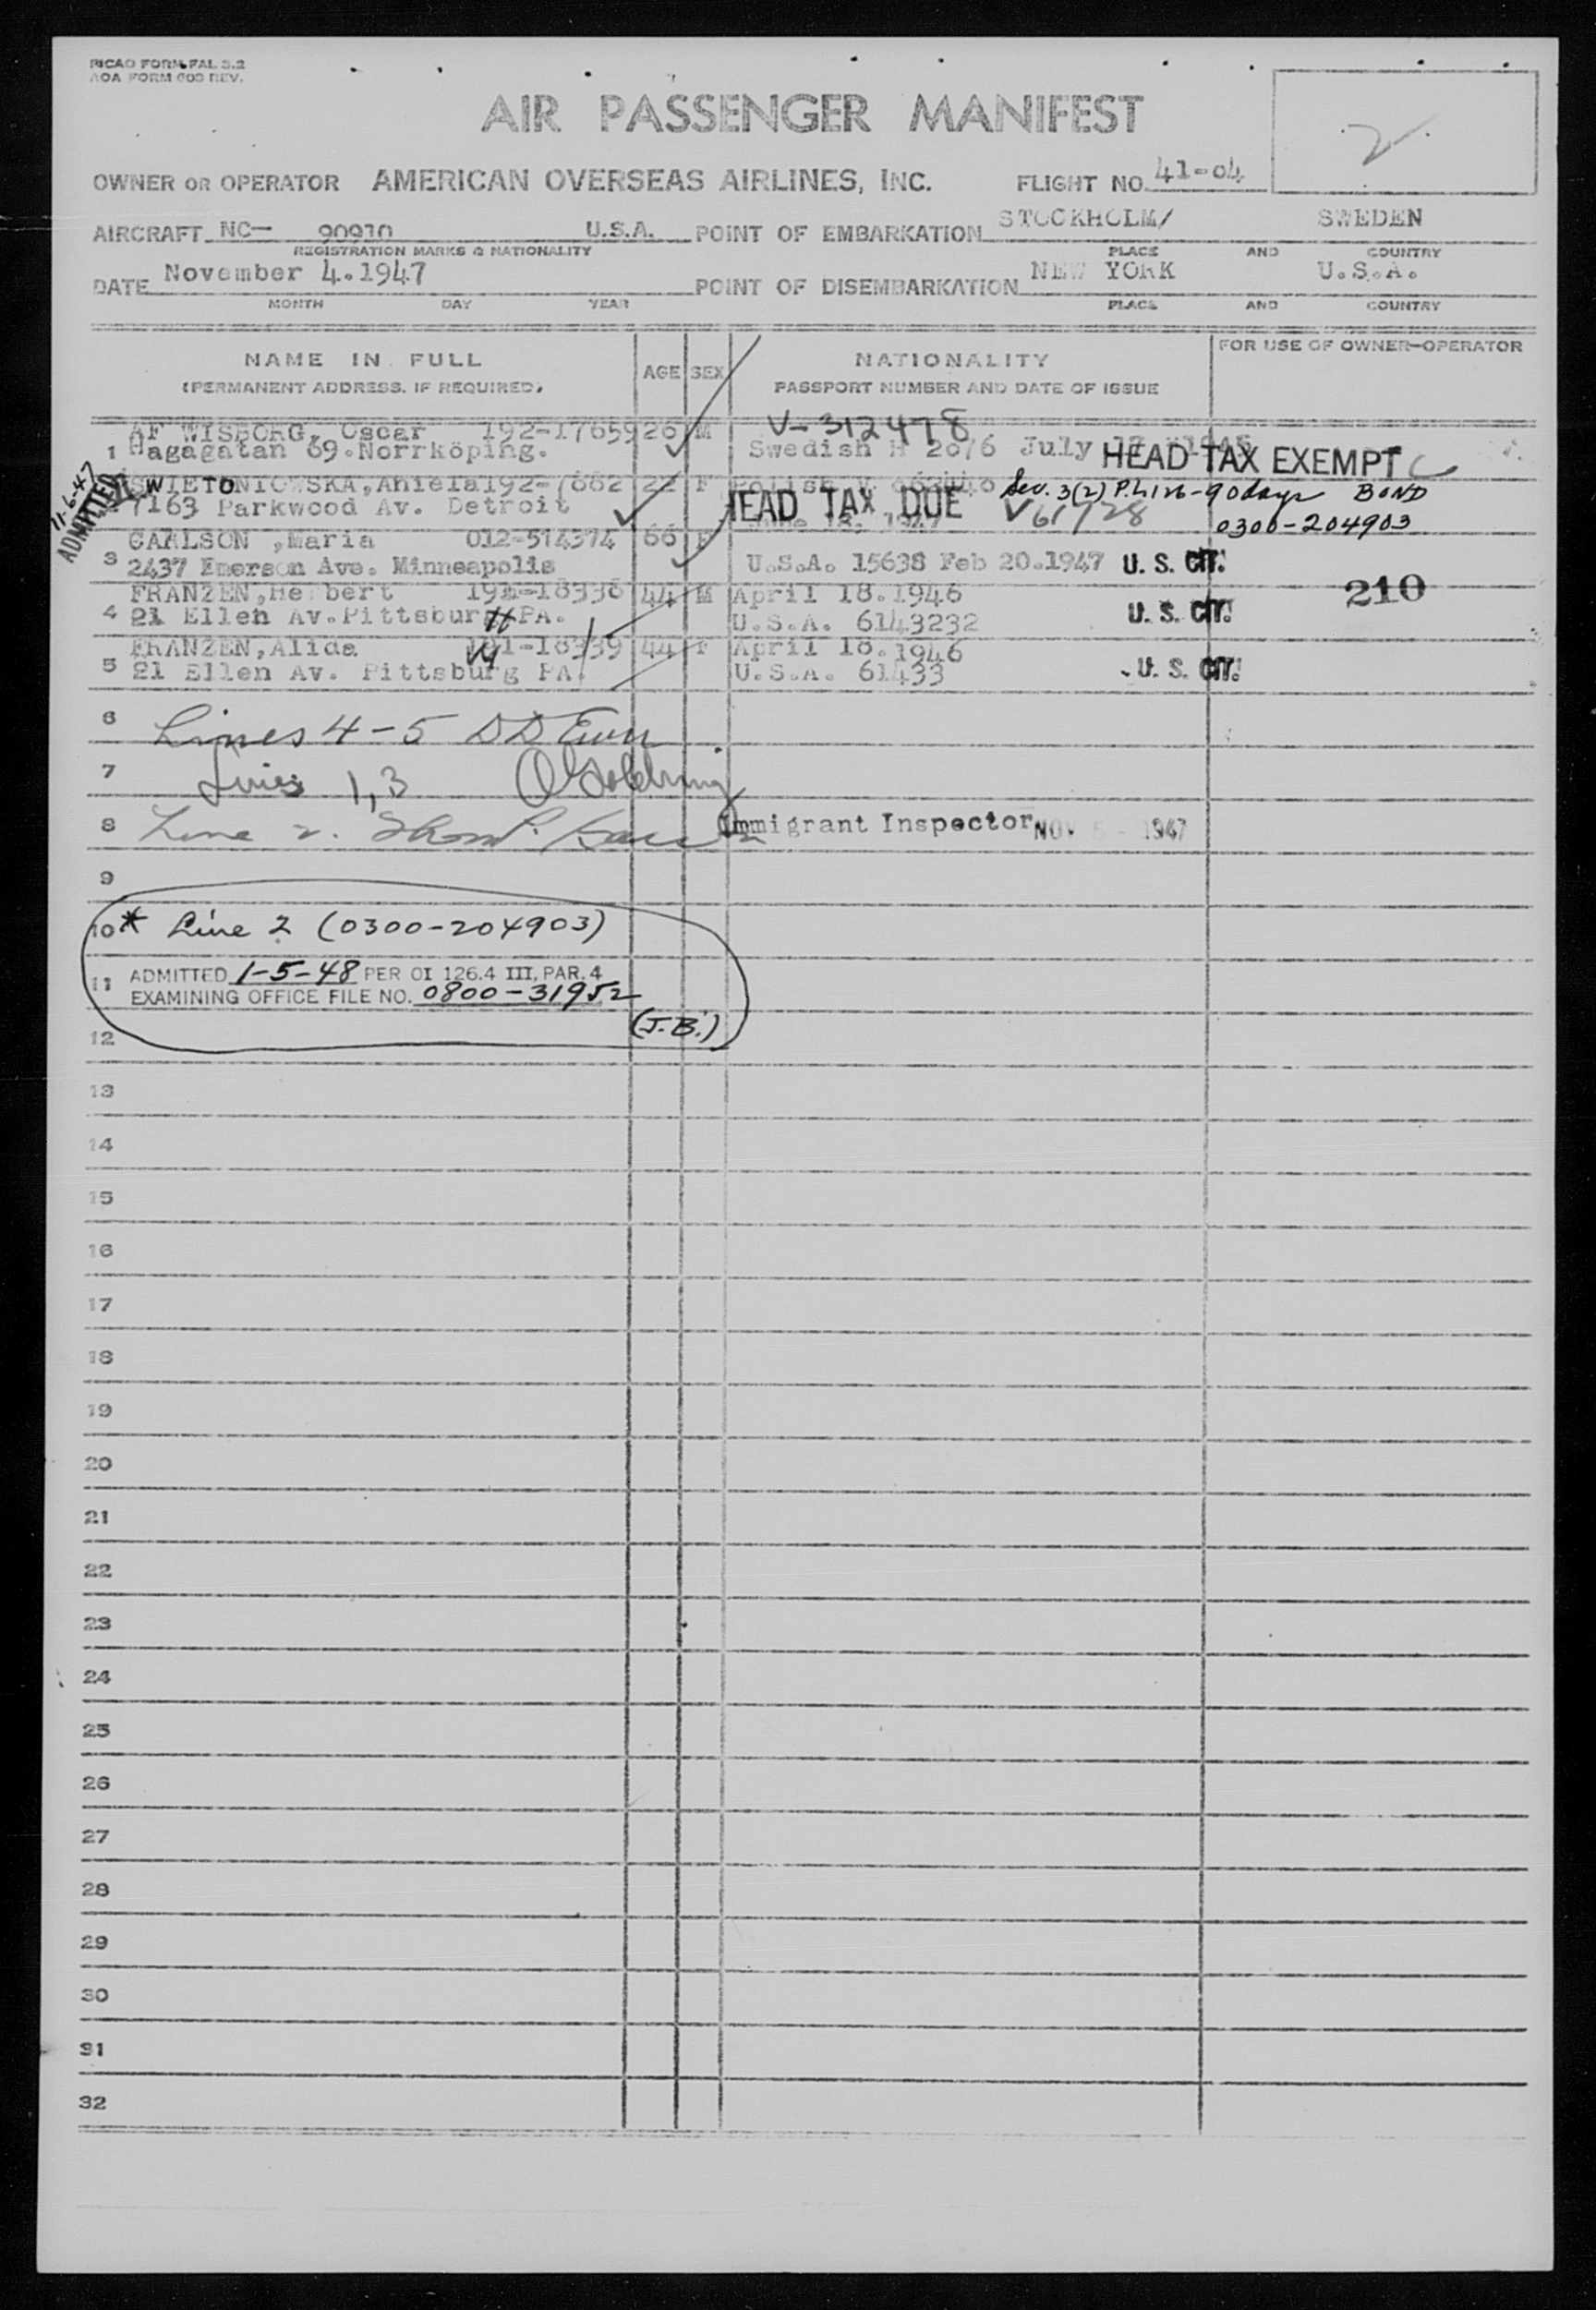 RICAO FORM FAL 3.2
AOA FORM 603 REV.
AIR PASSENGER MANIFEST
2
OWNER OR OPERATOR AMERICAN OVERSEAS AIRLINES, INC. FLIGHT NO. 41-04
AIRCRAFT NC- 90910 U.S.A. POINT OF EMBARKATION STOCKHOLM/ SWEDEN
REGISTRATION MARKS & NATIONALITY PLACE AND COUNTRY
DATE November 4.1947 POINT OF DISEMBARKATION NEW YORK U.S.A.
MONTH DAY YEAR PLACE AND COUNTRY
NAME IN FULL AGE SEX NATIONALITY FOR USE OF OWNER-OPERATOR
(PERMANENT ADDRESS, IF REQUIRED) PASSPORT NUMBER AND DATE OF ISSUE
AF WISBORG, Oscar 192-17659 26 M V-312478
1 Hagagatan 69.Norrköping. Swedish H 2076 July HEAD TAX EXEMPT
11-6-47 ADMITTED
SWIETONIOWSKA, Aniela 192-7662 22 F Polish Sec. 3(2) P.L. 126-90 days BOND
7163 Parkwood Av. Detroit HEAD TAX DUE V 61728 0300-204903
CARLSON ,Maria 012-514374 66 F
3 2437 Emerson Ave. Minneapolis U.S.A. 15638 Feb 20.1947 U. S. CIT.
FRANZEN, Herbert 191-18338 44 M April 18.1946 210
4 21 Ellen Av.Pittsburgh PA. U.S.A. 6143232 U. S. CIT.
FRANZEN, Alida 191-18339 44 F April 18.1946
5 21 Ellen Av. Pittsburg PA. U.S.A. 61433 U. S. CIT.
6 Lines 4-5 DD
7 Lines 1,3 O Goldring
8 Line 2. Immigrant Inspector NOV 5 - 1947
9
10 * Line 2 (0300-204903)
11 ADMITTED 1-5-48 PER OI 126.4 III, PAR. 4
EXAMINING OFFICE FILE NO. 0800-31952
(J.B.)
12
13
14
15
16
17
18
19
20
21
22
23
24
25
26
27
28
29
30
31
32